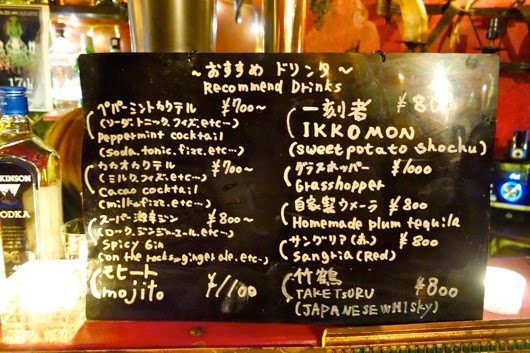 ~おすすめ ドリンク~
Recommend Drinks
ペパーミントカクテル ¥700~
(ソーダ、トニック、フィズ、etc…)
Peppermint cocktail
(soda.tonic.fizz.etc…)
カカオカクテル ¥700~
(ミルク、フィズ、etc…)
Cacao cocktail
(milk.fizz.etc…)
スーパー激辛ジン ¥800~
(ロック、ジンジャーエール、etc…)
Spicy Gin
(on the rocks.gingerale.etc…)
モヒート
mojito ¥1,100
一刻者 ¥800
IKKOMON
(sweet potato shochu)
グラスホッパー ¥1000
Grasshopper
自家製ウメーラ ¥800
Homemade plum tequila
サングリア(赤) ¥800
Sangria(Red)
竹鶴 ¥800
TAKETSURU
(JAPANESE WHISKY)
VODKA